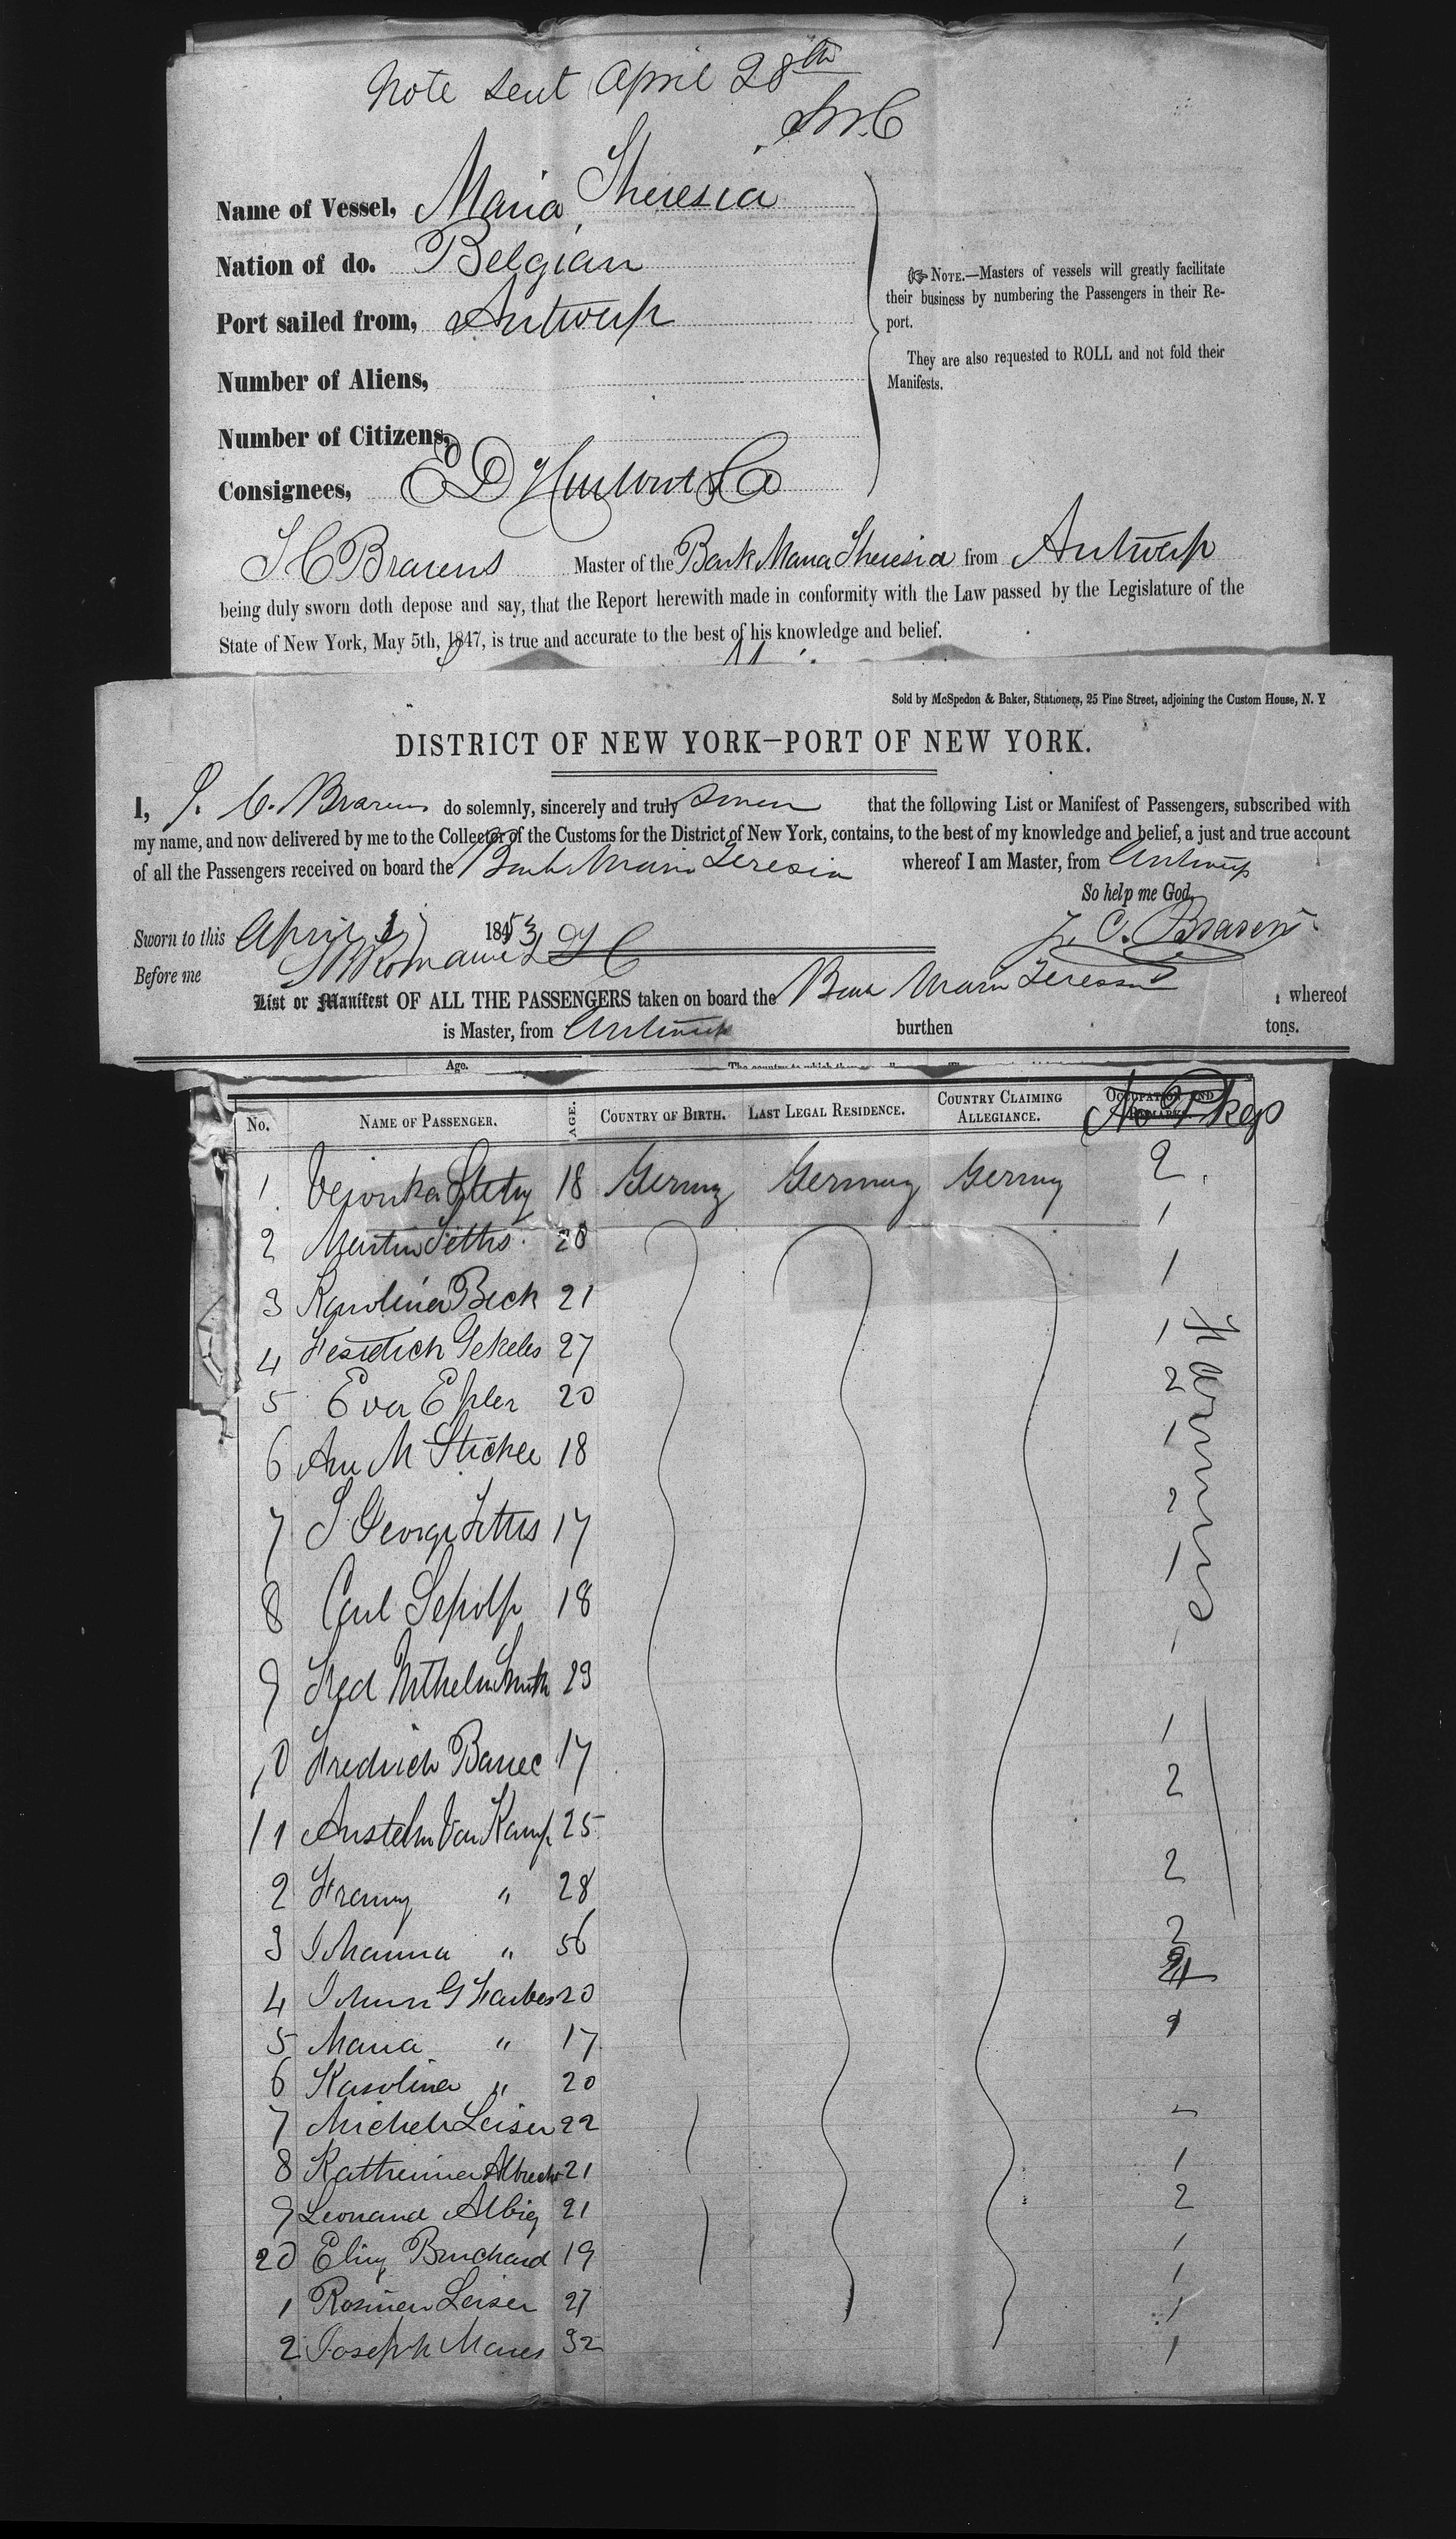 Note sent April 28th
Name of Vessel, Maria Theresia
Nation of do. Belgian
Port sailed from, Antwerp
Number of Aliens,
Number of Citizens,
Consignees, E D Hurlbut & Co
NOTE.—Masters of vessels will greatly facilitate
their business by numbering the Passengers in their Re-
port.
They are also requested to ROLL and not fold their
Manifests.
J C Brarens Master of the Bark Maria Theresia from Antwerp
being duly sworn doth depose and say, that the Report herewith made in conformity with the Law passed by the Legislature of the
State of New York, May 5th, 1847, is true and accurate to the best of his knowledge and belief.
Sold by McSpedon & Baker, Stationers, 25 Pine Street, adjoining the Custom House, N. Y
DISTRICT OF NEW YORK—PORT OF NEW YORK.
I, J. C. Braren do solemnly, sincerely and truly swear that the following List or Manifest of Passengers, subscribed with
my name, and now delivered by me to the Collector of the Customs for the District of New York, contains, to the best of my knowledge and belief, a just and true account
of all the Passengers received on board the Bark Maria Teresia whereof I am Master, from Antwerp
So help me God.
Sworn to this April 1853
J. C. Brarens
Before me
List or Manifest OF ALL THE PASSENGERS taken on board the Bark Maria Teresia whereof
is Master, from Antwerp burthen tons.
Age.
No. NAME OF PASSENGER. AGE. COUNTRY OF BIRTH. LAST LEGAL RESIDENCE. COUNTRY CLAIMING ALLEGIANCE. OCCUPATION AND REMARKS. No Pkgs
1 Veronika 18 Germy Germany Germy 2
2 Martin 28 1
3 Karolina Beck 21 1
4 Gekeler 27 1
5 Eva Epler 20 2
6 Ann M 18 1
7 J George 17 2
8 Carl 18 1
9 Fred Wilhelm Smith 23 1
10 Fredrich 17 1
11 Van Kamp 25 2
2 Franny " 28 2
3 Johanna " 56 2
4 Johann G 20
5 Maria " 17 1
6 Karolina " 20
7 Michel Leiser 22
8 Katherina Albrecht 21 1
9 Leonard Albig 21 2
20 19 1
1 Leiser 27 1
2 Joseph 32 1
Farmers